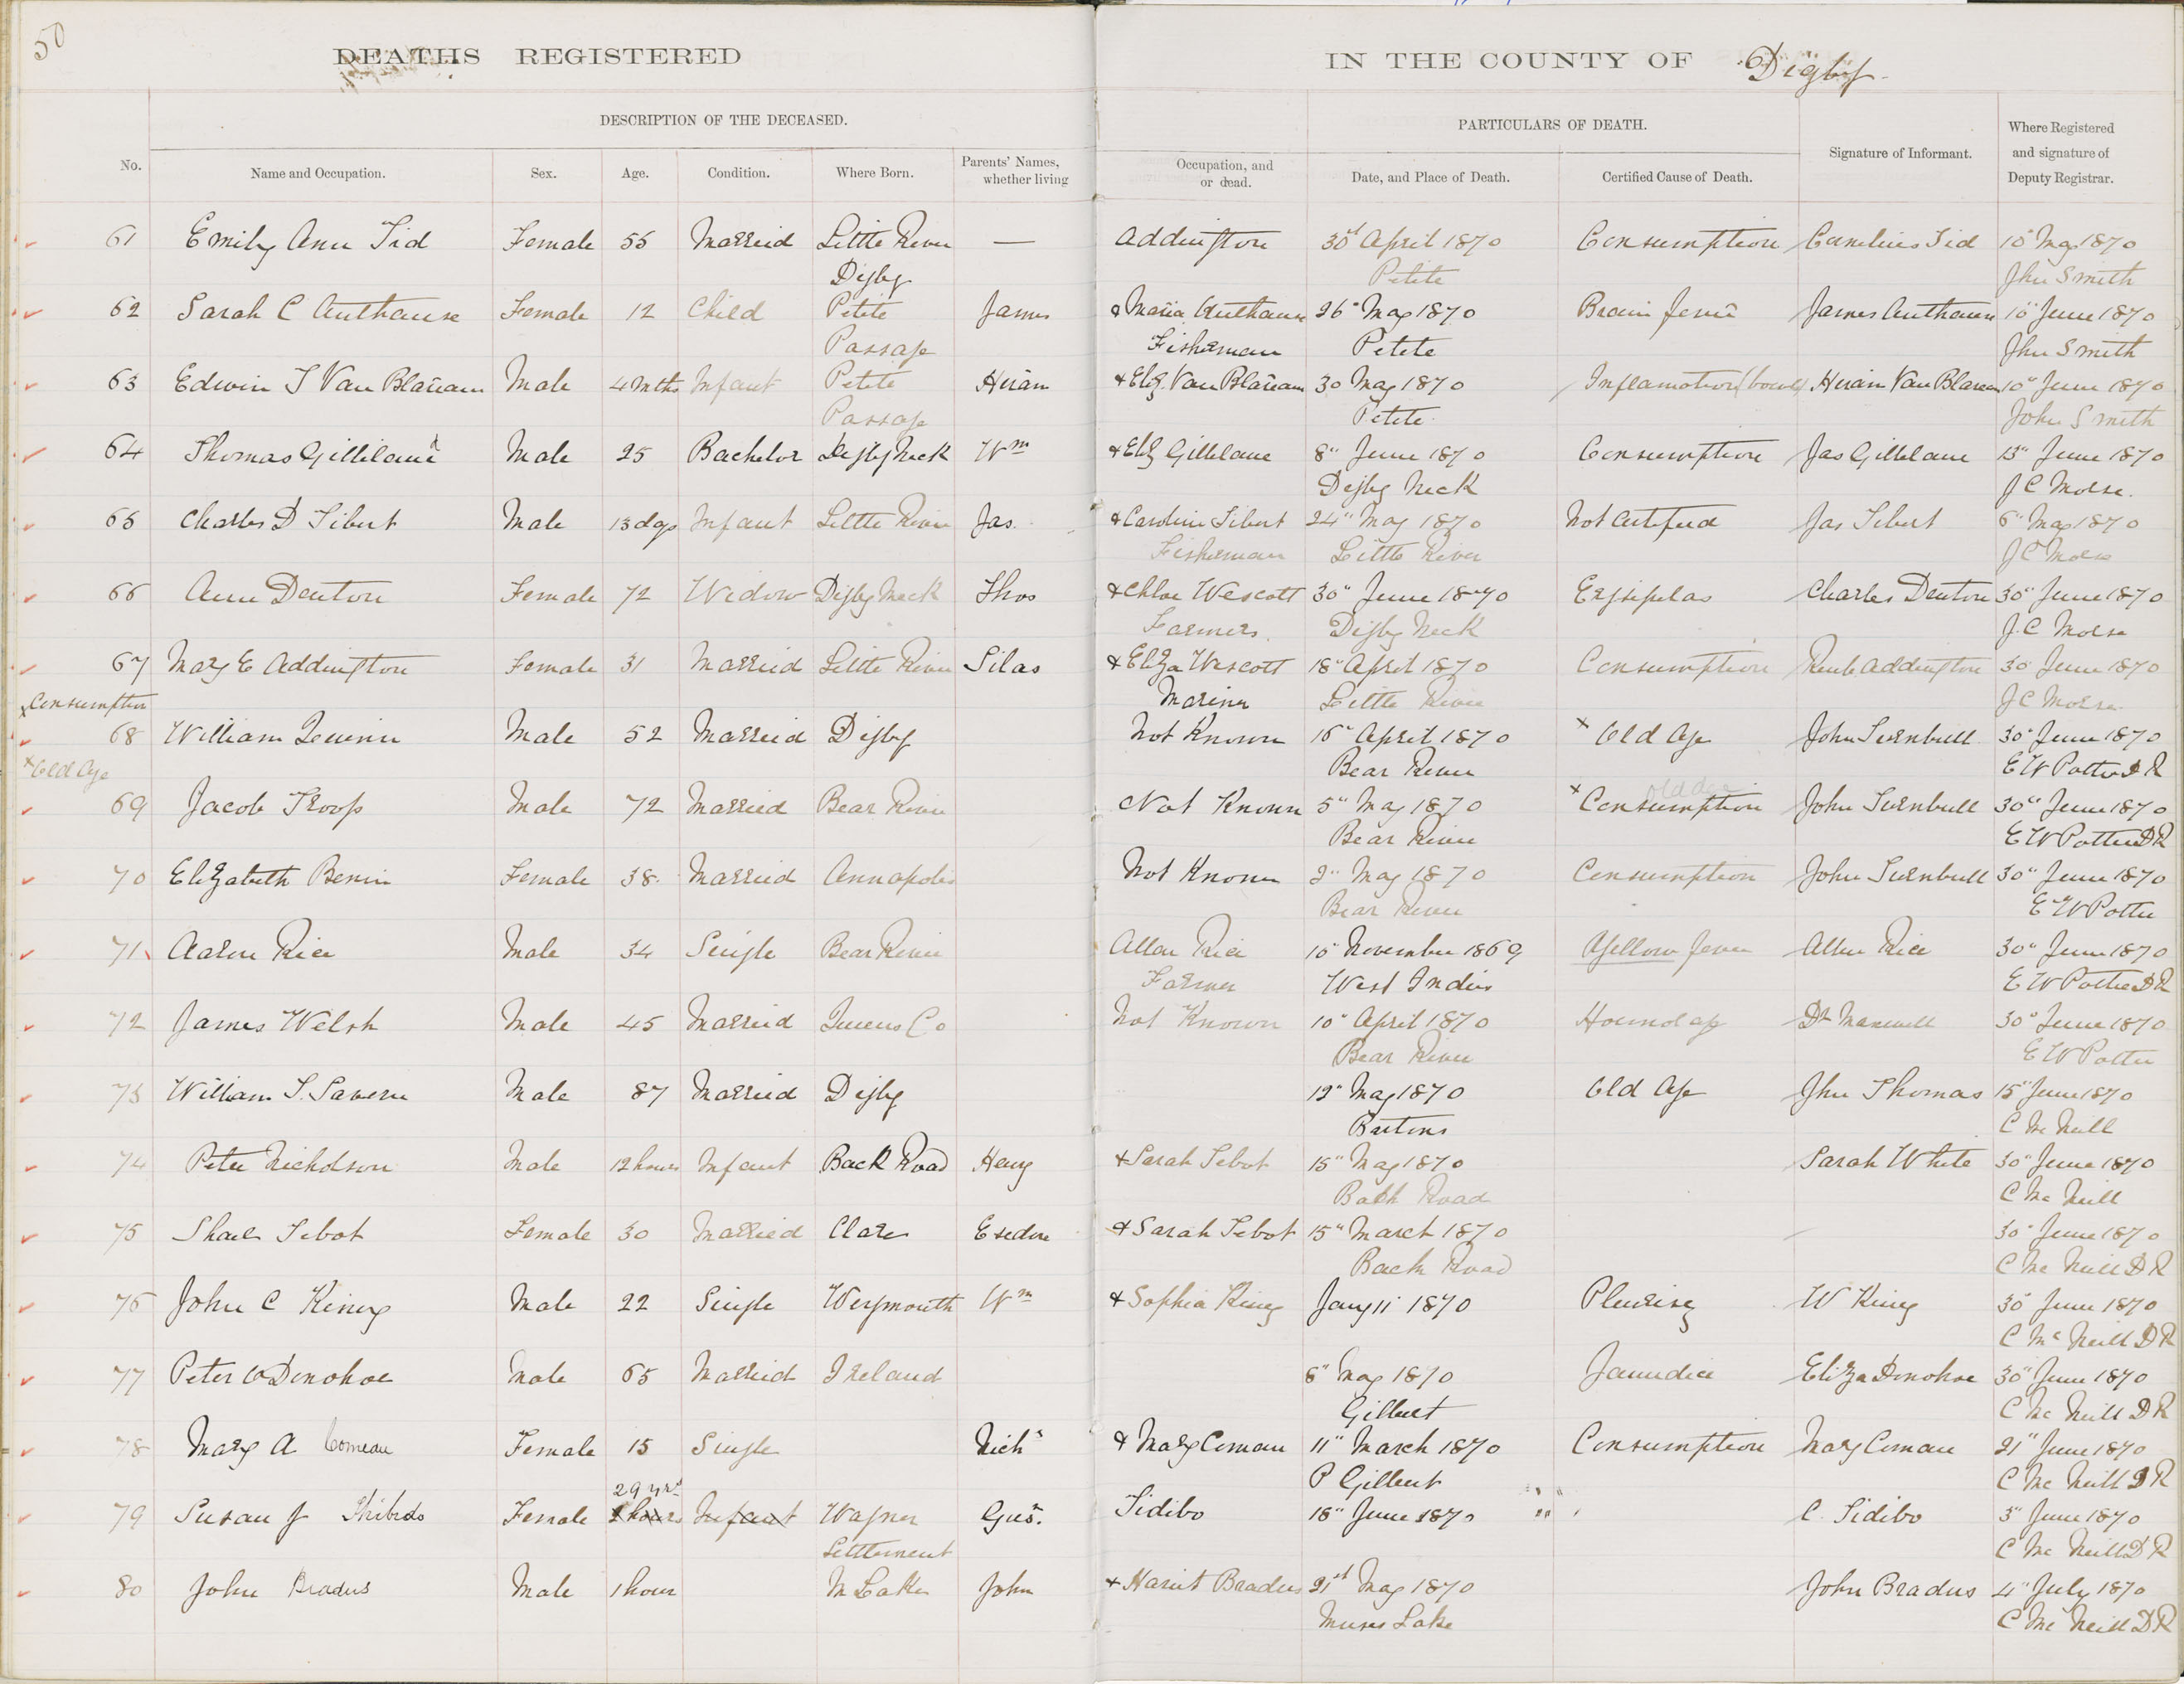 50
DEATHS REGISTERED IN THE COUNTY OF Digby
DESCRIPTION OF THE DECEASED. PARTICULARS OF DEATH.
No. Name and Occupation. Sex. Age. Condition. Where Born. Parents' Names, whether living Occupation, and or dead. Date, and Place of Death. Certified Cause of Death. Signature of Informant. Where Registered and signature of Deputy Registrar.
61 Emily Ann Tid Female 55 Married Little River — Addington 30d April 1870 Consumption Cornelius Tid 10" May 1870
Digby Petite Jhn Smith
62 Sarah C Outhause Female 12 Child Petite James & Maria Outhause 26" May 1870 Brain fever James Outhause 10" June 1870
Passage Fisherman Petite Jhn Smith
63 Edwin T Van Blaricam Male 4 mths Infant Petite Hiram & Eliz. Van Blaricam 30 May 1870 Inflamation (bowels) Hiram Van Blaricam 10" June 1870
Passage Petite John Smith
64 Thomas Gillilane Male 25 Bachelor Digby Neck Wm & Eliz Gillilane 8" June 1870 Consumption Jas Gillilane 13" June 1870
Digby Neck J C Morse.
65 Charles D Tibert Male 13 dys Infant Little River Jas. & Caroline Tibert 24" May 1870 Not Certified Jas Tibert 6" May 1870
Fisherman Little River J C Morse
66 Ann Denton Female 72 Widow Digby Neck Thos & Chloe Wescott 30" June 1870 Erysipelas Charles Denton 30" June 1870
Farmers. Digby Neck J. C Morse
67 Mary E Addington Female 31 Married Little River Silas & Eliza Wescott 18" April 1870 Consumption Reub Addington 30 June 1870
x Consumption Mariner Little River J C Morse.
68 William Quinn Male 52 Married Digby Not Known 16" April 1870 x Old Age John Turnbull 30" June 1870
x Old Age Bear River E W Potter D R
old age
69 Jacob Troop Male 72 Married Bear River Not Known 5" May 1870 x Consumption John Turnbull 30" June 1870
Bear River E W Potter D R
70 Elizabeth Benin Female 38. Married Annapolis Not Known 2" May 1870 Consumption John Turnbull 30" June 1870
Bear River E W Potter
71 Aaron Rice Male 34 Single Bear River Allan Rice 10" November 1869 Yellow fever Allan Rice 30" June 1870
Farmer West Indies E W Potter D R
72 James Welsh Male 45 Married Queens Co Not Known 10" April 1870 Dr 30" June 1870
Bear River E W Potter
73 William T. Savern Male 87 Married Digby 12" May 1870 Old Age Jhn Thomas 15" June 1870
Bartons C Mc Neill
74 Peter Nicholson Male 12 hours Infant Back Road Henry & Sarah Tebot 15" May 1870 Sarah White 30" June 1870
Back Road C Mc Neill
75 Tebot Female 30 Married Clare & Sarah Tebot 15" March 1870 30" June 1870
Back Road C Mc Neill D R
76 John C King Male 22 Single Weymouth Wm & Sophia King Jany 11" 1870 Pleurisy W King 30" June 1870
C Mc Neill D R
77 Peter O Donohoe Male 65 Married Ireland 8" May 1870 Jaundice Eliza Donohoe 30" June 1870
Gilbert C Mc Neill D R
78 Mary A Comeau Female 15 Single Nichs & Mary Comau 11" March 1870 Consumption Mary Comau 21" June 1870
P Gilbert C Mc Neill D R
29 yrs
79 Susan J Thibido Female hours Infant Wagner Gus. Tidibo 18" June 1870 C. Tidibo 3" June 1870
Settlement C Mc Neill D R
80 John Bradus Male 1 hour M Lake John & Hariet Bradus 21st May 1870 John Bradus 4" July 1870
Muses Lake C Mc Neill D R